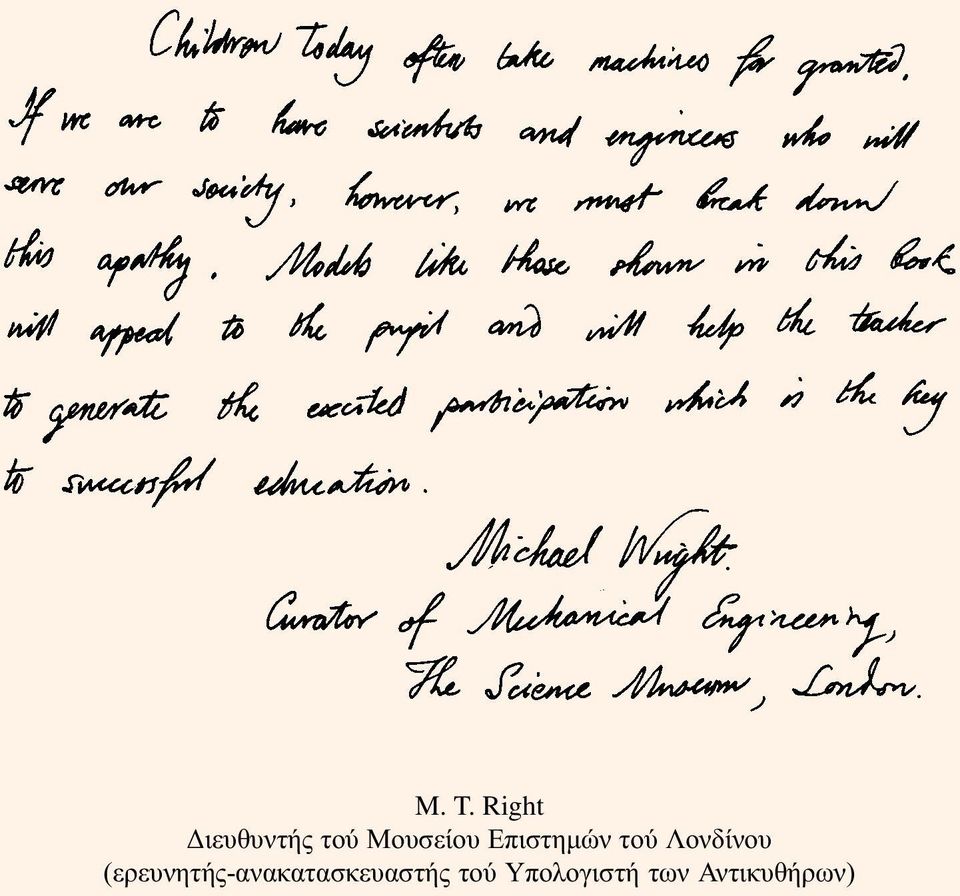 Children today often take machines for granted.
If we are to have scientists and engineers who will
serve our society, however, we must break down
this apathy. Models like those shown in this book
will appeal to the pupil and will help the teacher
to generate the excited participation which is the key
to successful education.
Michael Wright.
Curator of Mechanical Engineering,
The Science Museum, London.
M. T. Right
Διευθυντής τού Μουσείου Επιστημών τού Λονδίνου
(ερευνητής-ανακατασκευαστής τού Υπολογιστή των Αντικυθήρων)